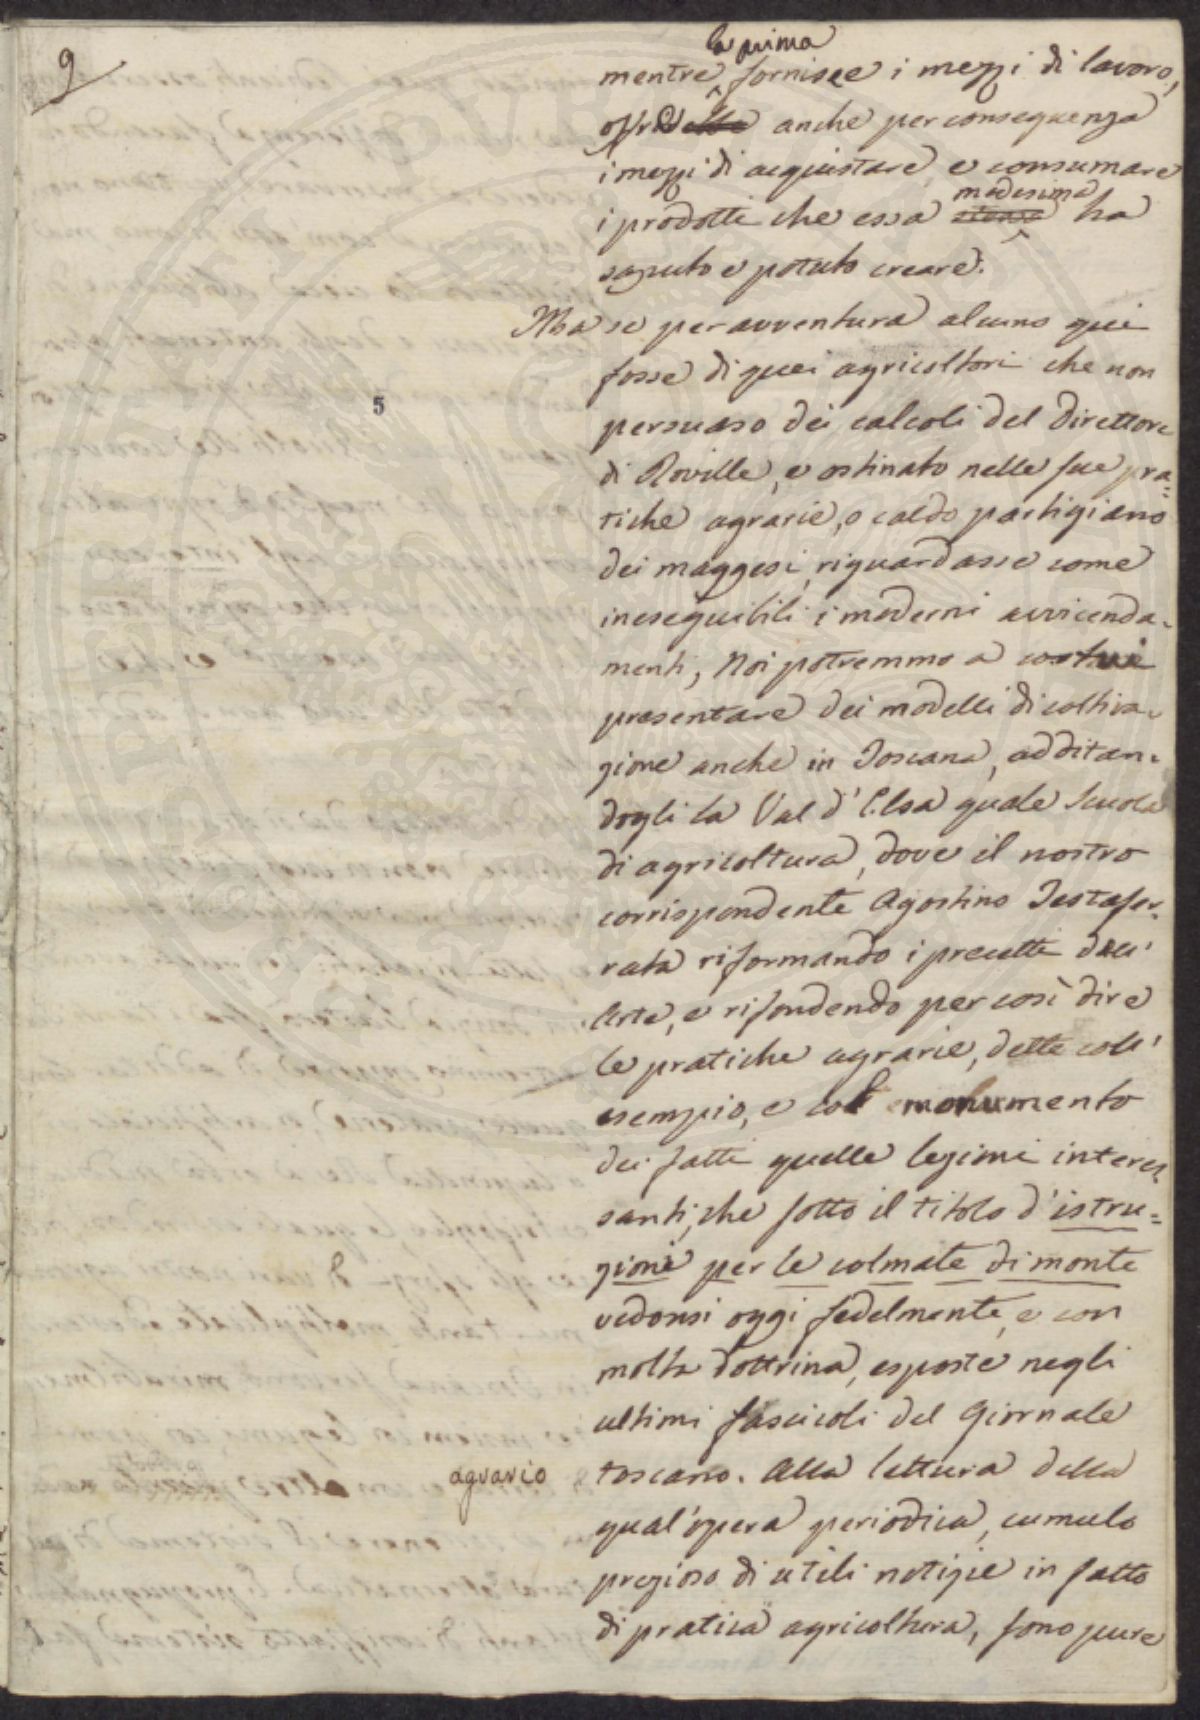 9
la prima
mentre fornisce i mezzi di lavoro,
offre anche per conseguenza
i mezzi di acquistare, e consumare
medesima
i prodotti che essa stessa ha
saputo e potuto creare.
Ma se per avventura alcuno qui
fosse di quei agricoltori che non
5
persuaso dei calcoli del Direttore
di Roville, e ostinato nelle sue pra=
tiche agrarie, o caldo partigiano
dei maggesi, riguardasse come
ineseguibili i moderni avvicenda-
menti, Noi potremmo a costui
presentare dei modelli di coltiva-
zione anche in Toscana, additan-
dogli la Val d'Elsa quale Scuola
di agricoltura, dove il nostro
corrispondente Agostino Testafer-
rata riformando i precetti dell'
Arte, e rifondendo per così dire
le pratiche agrarie, dette coll'
esempio, e col monumento
dei fatti quelle lezioni interes
santi, che sotto il titolo d'istru=
zioni per le colmate di monte
vedonsi oggi fedelmente, e con
molta dottrina, esposte negli
ultimi fascicoli del Giornale
agrario
toscano. Alla lettura della
qual'opera periodica, cumulo
prezioso di utili notizie in fatto
di pratica agricoltura, sono pure